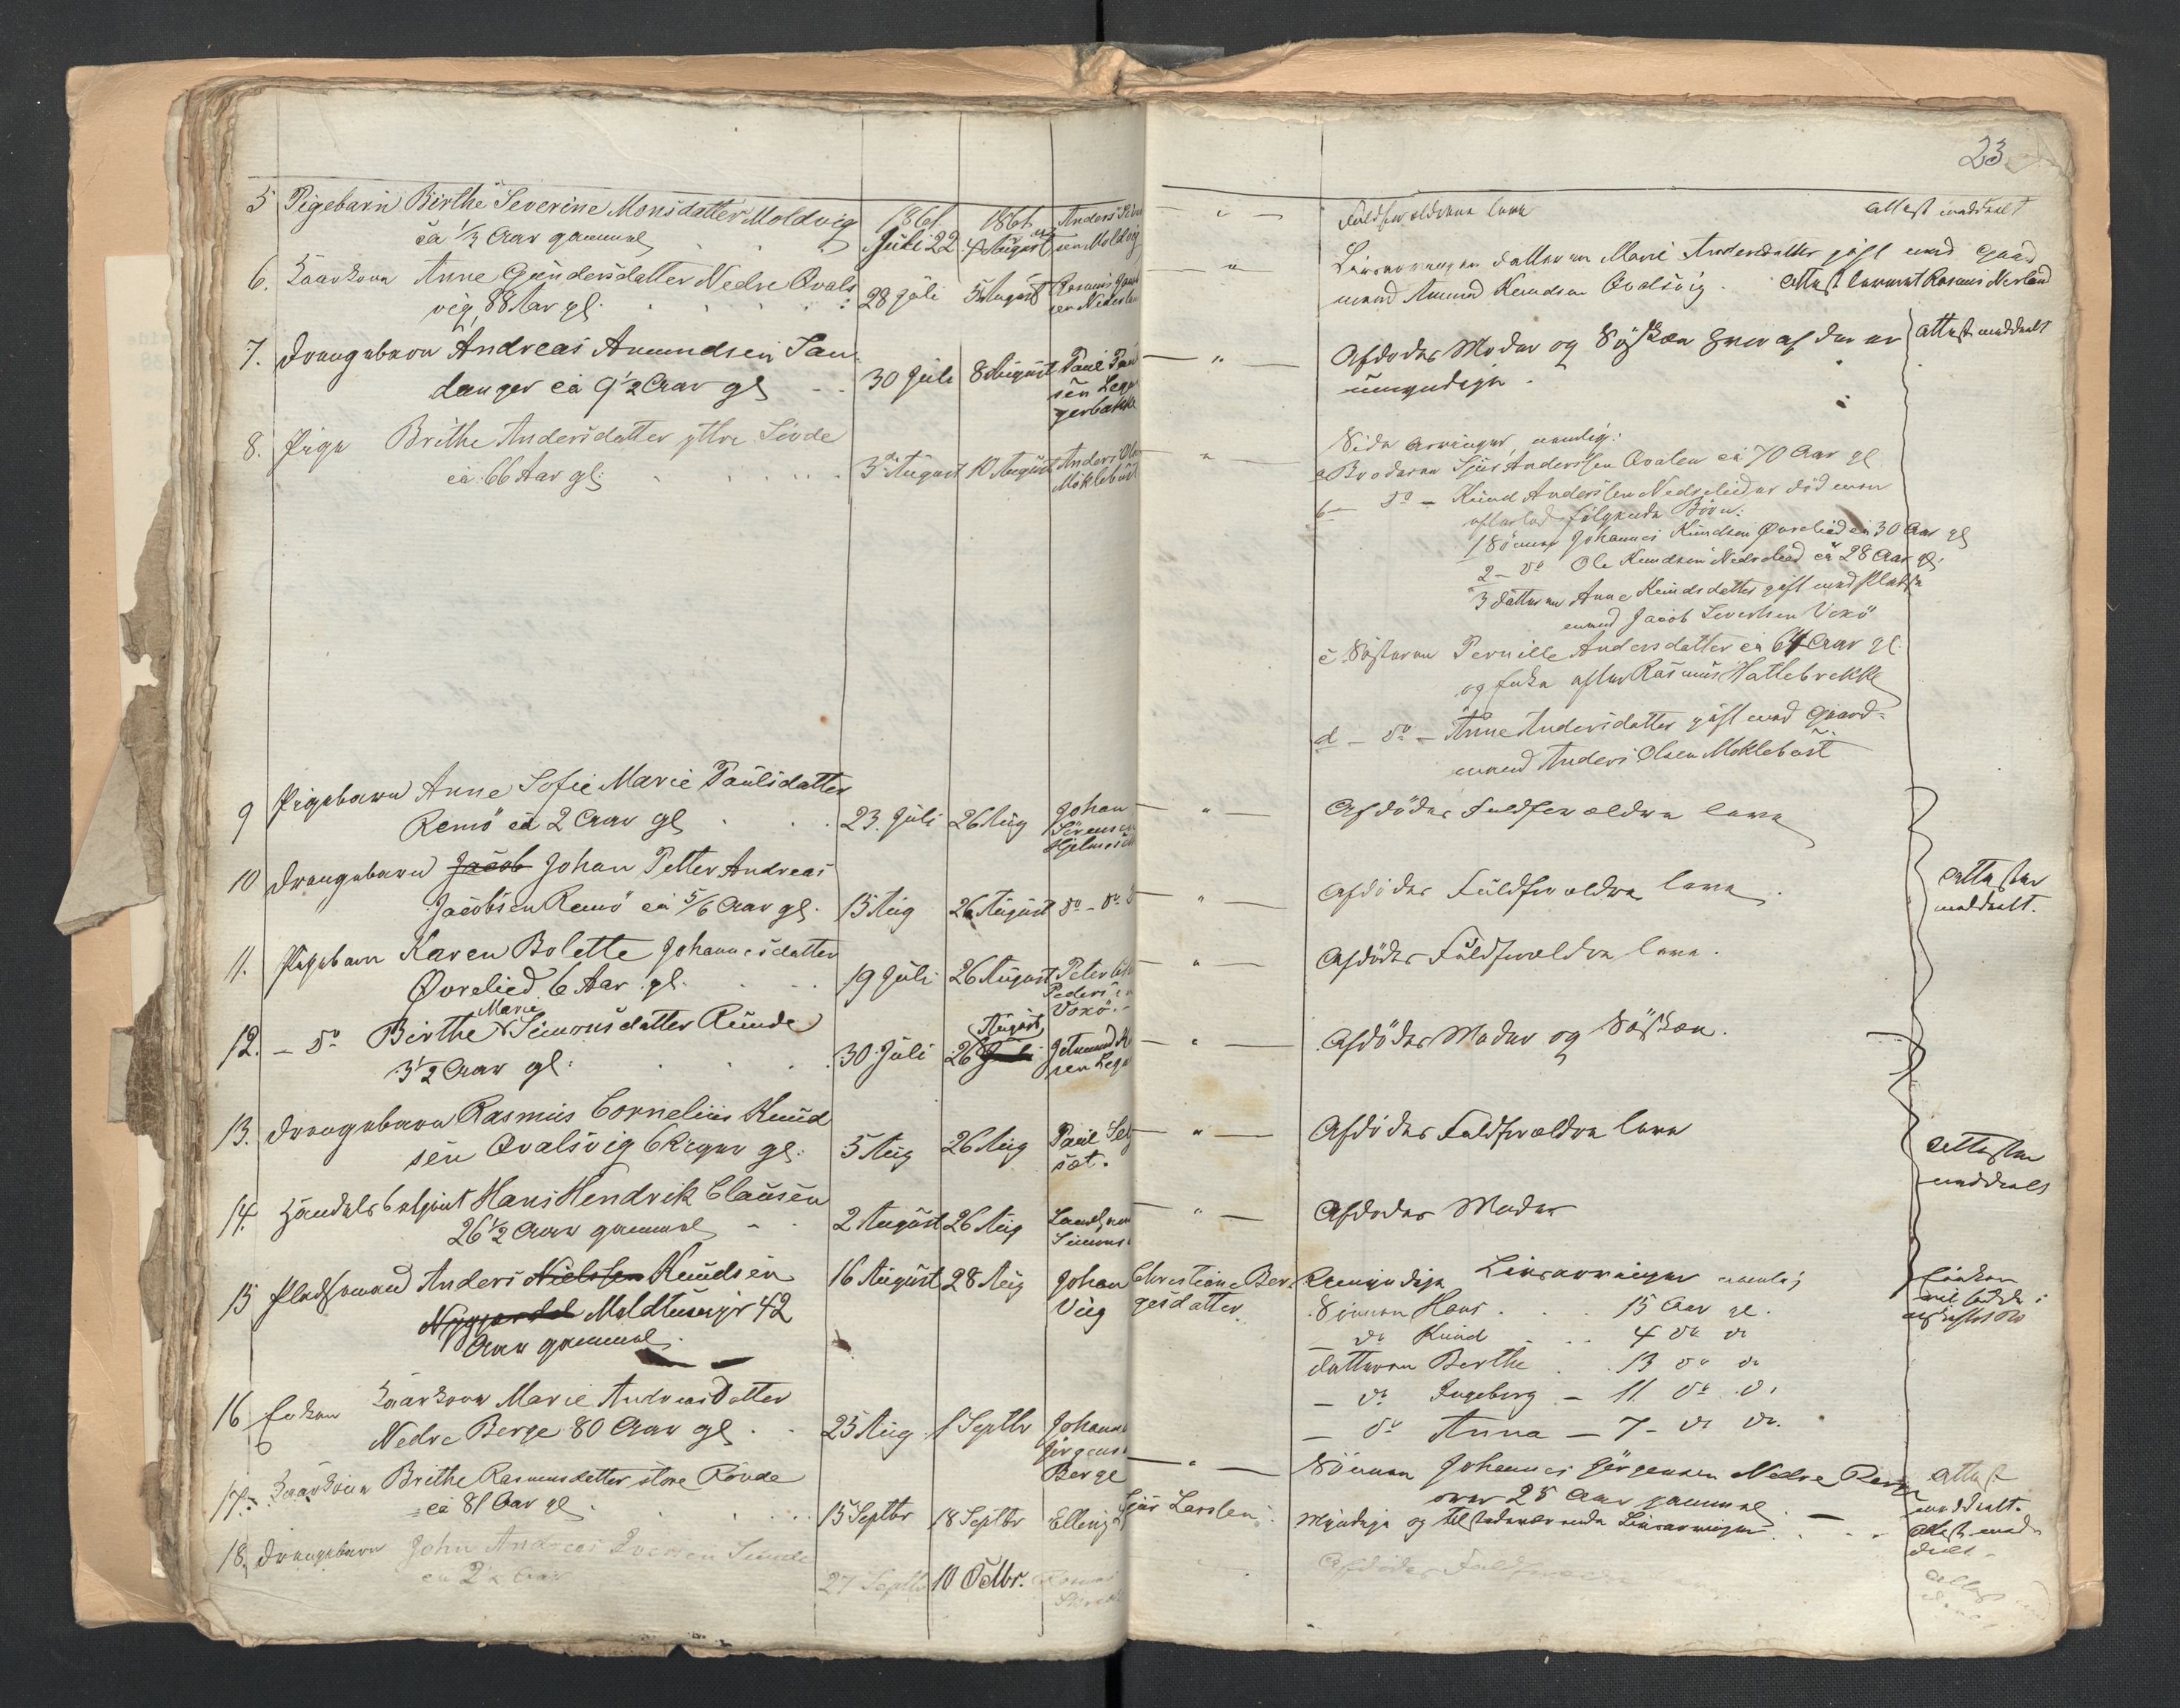 23
5 Pigebarn Birthe Severine Monsdatter Moldvig
ca 1/3 Aar gammel
1861 Juli 22
1861 4 August
Anders
sen Moldvig
"
Fuldforældrene leve
attest meddeelt
6. Kaarkona Anne Gundersdatter Nedre Qvals
vig, 88 Aar gl.
28 Juli
5 August
Rasmus
sen Nerland
"
Livsarvingen datteren Marie Andersdatter gift med Gaard
mand Amund Knudsen Qvalsvig. Attest leveret Rasmus Nerland
7. Drengebarn Andreas Amundsen San
danger ca 9 1/2 Aar gl
30 Juli
8 August
Paul
sen Leg
gerbakke
"
Afdødes Moder og Søsken hvoraf der er
umyndige.
attest meddeelt
8. Pige Brithe Andersdatter ytre Søvde
ca: 66 Aar gl:
3de August
10 August
Anders Ols
Møklebust
"
Side arvinger, nemlig:
a Broderen Sjur Anderssen Qvalen ca 70 Aar gl
b - do - Knud Anderssen Nedrelied er død men
efterlod følgende Børn:
1 Sønnen Johannes Knudsen Øvrelied ca 30 Aar gl
2 - do Ole Knudsen Nedrelied ca 28 Aar gl.
3 datteren Anne Knudsdatter gift med Pladse
mand Jacob Severtsen Voxø
c Søsteren Pernille Andersdatter ca 64 Aar gl.
og Enke efter Rasmus Hattebrekke
d - do - Anne Andersdatter gift med Gaard-
mand Anders Olsen Møklebust
9 Pigebarn Anne Sofie Marie Paulsdatter
Remø ca 2 Aar gl
23. Juli
26 Aug
Johan
Sørensen
"
Afdødes Fuldforældre leve
10 Drengebarn Jacob Johan Petter Andreas
Jacobsen Remø ca 5/6 Aar gl.
15 Aug
26 August
do - do
"
Afdødes Fuldforældre leve.
attester
meddeelt.
11. Pigebarn Karen Bolette Johannesdatter
Øvrelied 6 Aar gl.
19 Juli
26 August
Peter
Peders
Voxø.
"
Afdødes Fuldforældre leve.
12. - do Birthe Marie Simonsdatter Runde
3 1/2 Aar gl:
30 Juli
26 Juli August
Jetmund
sen
"
Afdødes Moder og Søsken.
13. Drengebarn Rasmus Cornelius Knud
sen Qvalsvig 6 Uger gl:
5 Aug
26 Aug
Paul
sæt.
"
Afdødes Fuldforældre leve
attester
meddeelt
14. Handelsbetjent Hans Hendrik Clausen
26 1/2 Aar gammel
2 August
26 Aug
Simons
"
Afdødes Moder
15 Pladsemand Anders Nielssen Knudsen
Myggerdal Moldtumyr 42
Aar gammel.
16 August
28 Aug
Johan
Vug
Christiane Ber
gesdatter
Umyndige Livsarvinger nemlig
Sønnen Hans . . 15 Aar gl.
do Knud . . 4 do do
datteren Berthe . 13 do do
- do Ingeborg - 11 do do
- do Anna - 7 - do do.
16 Enken Kaarkona Marie Andreasdatter
Nedre Berge 80 Aar gl
25 Aug
1 Septbr
Johann
Jørgens
Berge
"
Sønnen Johannes Jørgensen Nedre Berge
over 25 Aar gammel
attest
meddeelt.
17. Kaarkona Brithe Rasmusdatter store Røvde
ca 81 Aar gl
15 Septbr
18 Septbr
Elling
Sjur Larssen
Myndige og tilstedeværende Livsarvinger
attest med
deelt
18. Drengebarn John Andreas Iversen Sunde
ca 2 1/2 Aar
27 Septbr
10 Octbr.
Afdødes Fuldforældre
attest